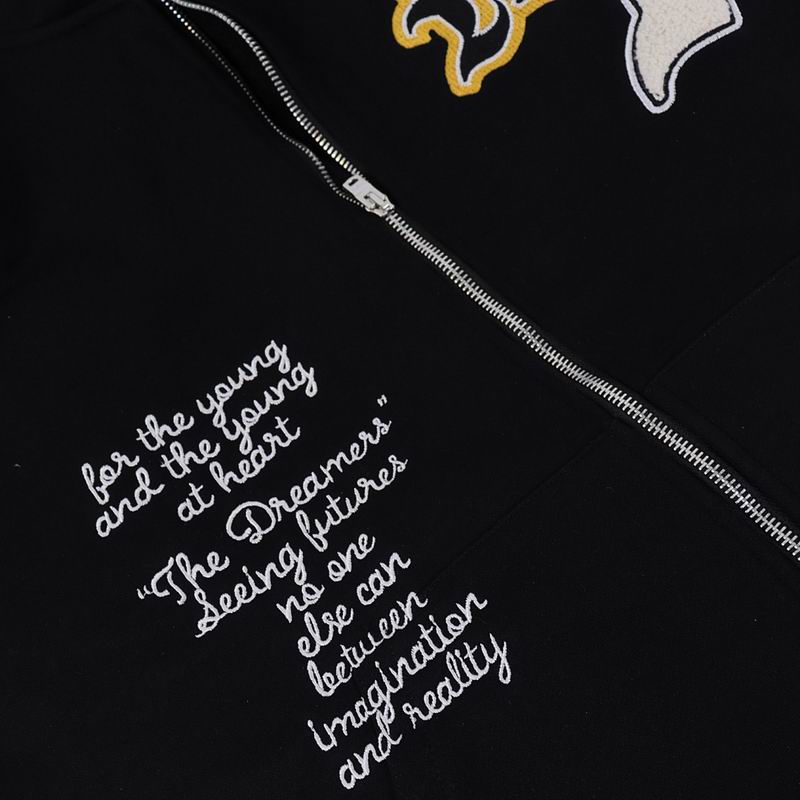 for the young
and the young
at heart
"The Dreamers"
Seeing futures
no one
else can
between
imagination
and reality